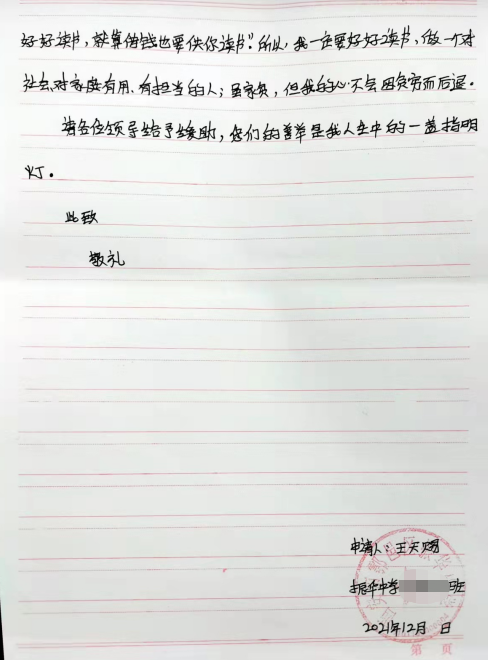 好好读书，就算借钱也要供你读书”。所以，我一定要好好读书，做一个对
社会对家庭有用、有担当的人；虽家贫，但我的心不会因贫穷而后退。
请各位领导给予缓助，您们的善举是我人生中的一盏指明
灯。
此致
敬礼
申请人：王天翊
振华中学 班
2021年12月 日
第 页